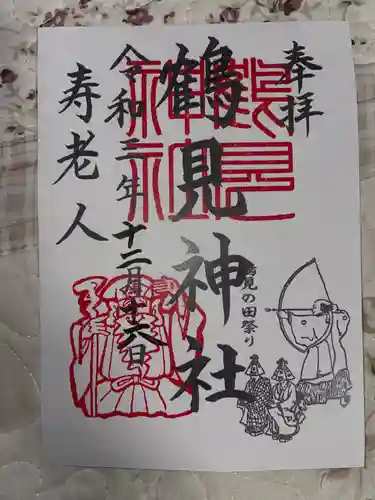 奉拝
鶴見神社
鶴見神社
鶴見の田祭り
令和三年十二月十六日
寿老人